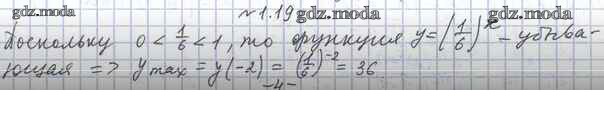 №1.19 gdz.moda
gdz.moda
Поскольку 0 < 1/6 < 1, то функция y = (1/6)^x - убыва-
ющая => y max = y(-2) = (1/6)^-2 = 36.
-4-